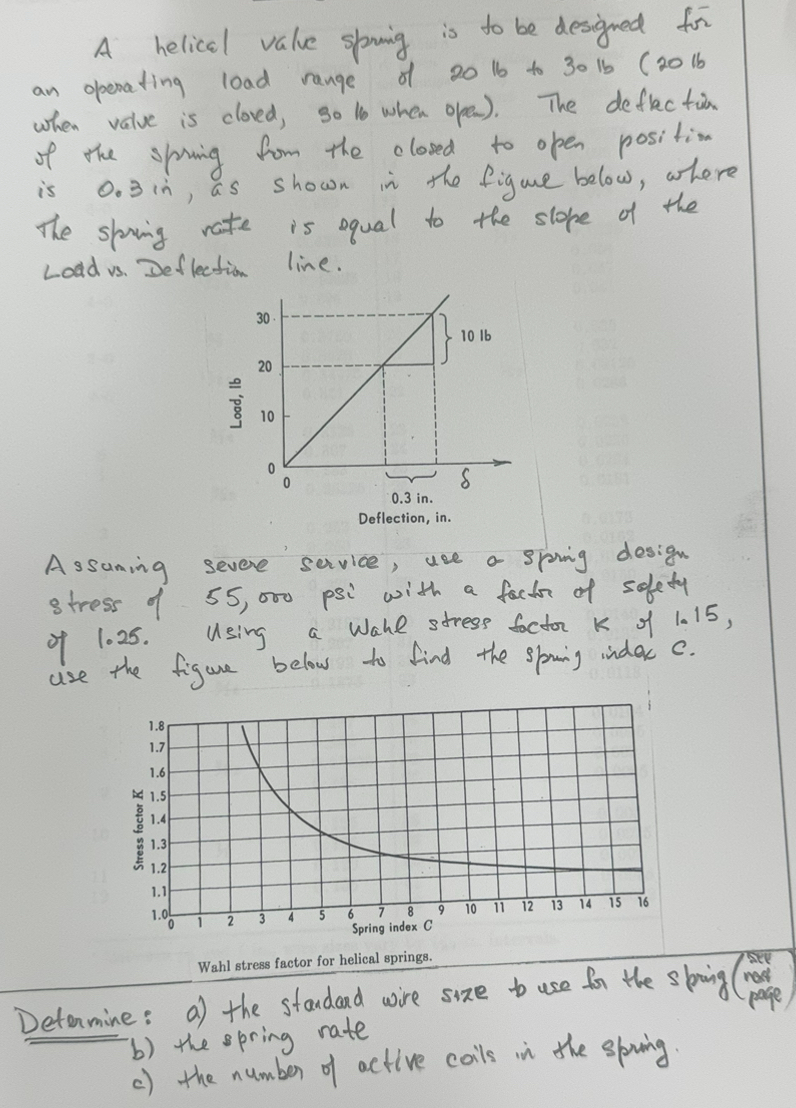 A helical valve spring is to be designed for
an operating load range of 20 lb to 30 lb (20 lb
when valve is closed, 30 lb when open). The deflection
of the spring from the closed to open position
is 0.3 in, as shown in the figure below, where
The spring rate is equal to the slope of the
Load vs. Deflection line.
30
10 lb
20
Load, lb
10
0
0
δ
0.3 in.
Deflection, in.
Assuming severe service, use a spring design
stress of 55,000 psi with a factor of safety
of 1.25. Using a Wahl stress factor K of 1.15,
use the figure below to find the spring index C.
1.8
1.7
1.6
1.5
1.4
1.3
1.2
1.1
1.0
Stress factor K
0 1 2 3 4 5 6 7 8 9 10 11 12 13 14 15 16
Spring index C
Wahl stress factor for helical springs.
Determine: a) the standard wire size to use for the spring (see next page)
b) the spring rate
c) the number of active coils in the spring.